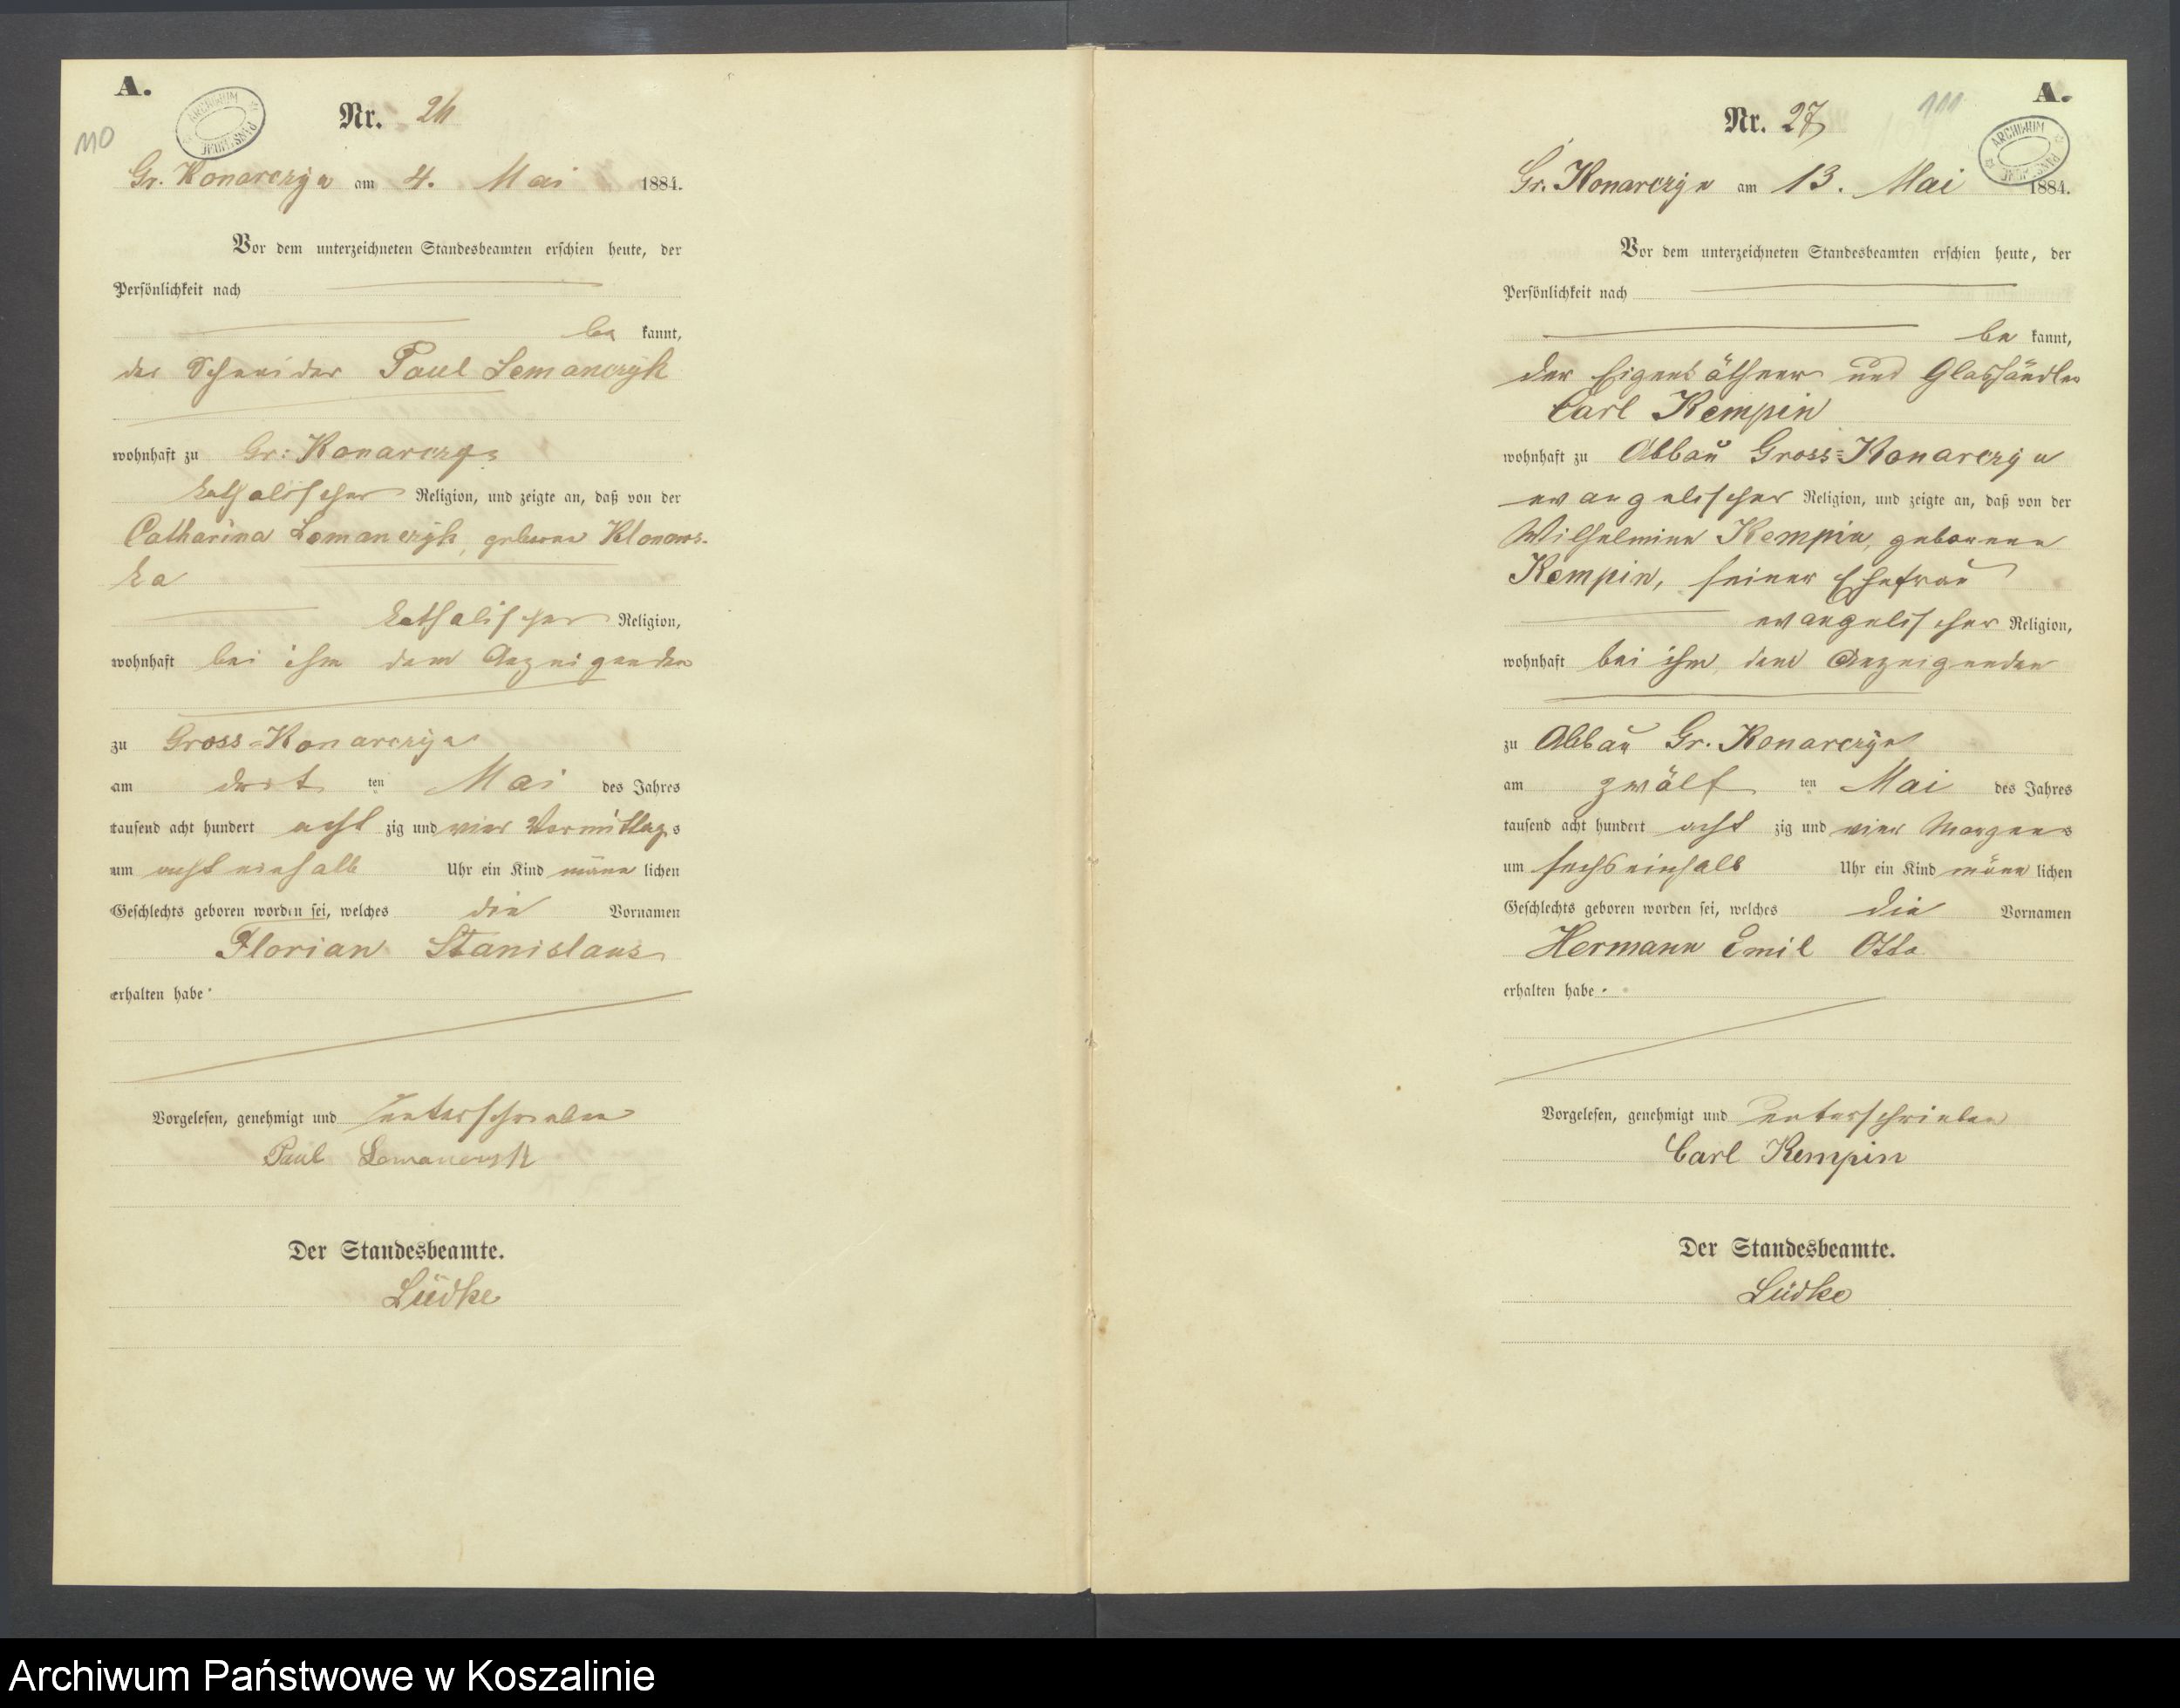 A.
110
ARCHIWUM PAŃSTWOWE
Nr. 26
Gr. Konarczyn am 4. Mai 1884.
Vor dem unterzeichneten Standesbeamten erschien heute, der
Persönlichkeit nach
be kannt,
der Schneider Paul Lemanczyk
wohnhaft zu Gr: Konarczyn
katholischer Religion, und zeigte an, daß von der
Catharina Lemanczyk, geborene Klonows-
ka
katholischer Religion,
wohnhaft bei ihm dem Anzeigenden
zu Gross-Konarczyn
am drit ten Mai des Jahres
tausend acht hundert acht zig und vier Vormittags
um acht einhalb Uhr ein Kind männ lichen
Geschlechts geboren worden sei, welches die Vornamen
Florian Stanislaus
erhalten habe.
Vorgelesen, genehmigt und unterschrieben
Paul Lemanczyk
Der Standesbeamte.
Lüdke
A.
111
ARCHIWUM PAŃSTWOWE
Nr. 27
Gr. Konarczyn am 13. Mai 1884.
Vor dem unterzeichneten Standesbeamten erschien heute, der
Persönlichkeit nach
be kannt,
der Eigenkäthner und Glashändler
Carl Kempin
wohnhaft zu Abbau Gross-Konarczyn
evangelischer Religion, und zeigte an, daß von der
Wilhelmine Kempin, geborenen
Kempin, seiner Ehefrau
evangelischer Religion,
wohnhaft bei ihm, dem Anzeigenden
zu Abbau Gr. Konarczyn
am zwölf ten Mai des Jahres
tausend acht hundert acht zig und vier Morgens
um sechs einhalb Uhr ein Kind männ lichen
Geschlechts geboren worden sei, welches die Vornamen
Hermann Emil Otto
erhalten habe.
Vorgelesen, genehmigt und unterschrieben
Carl Kempin
Der Standesbeamte.
Lüdke
Archiwum Państwowe w Koszalinie